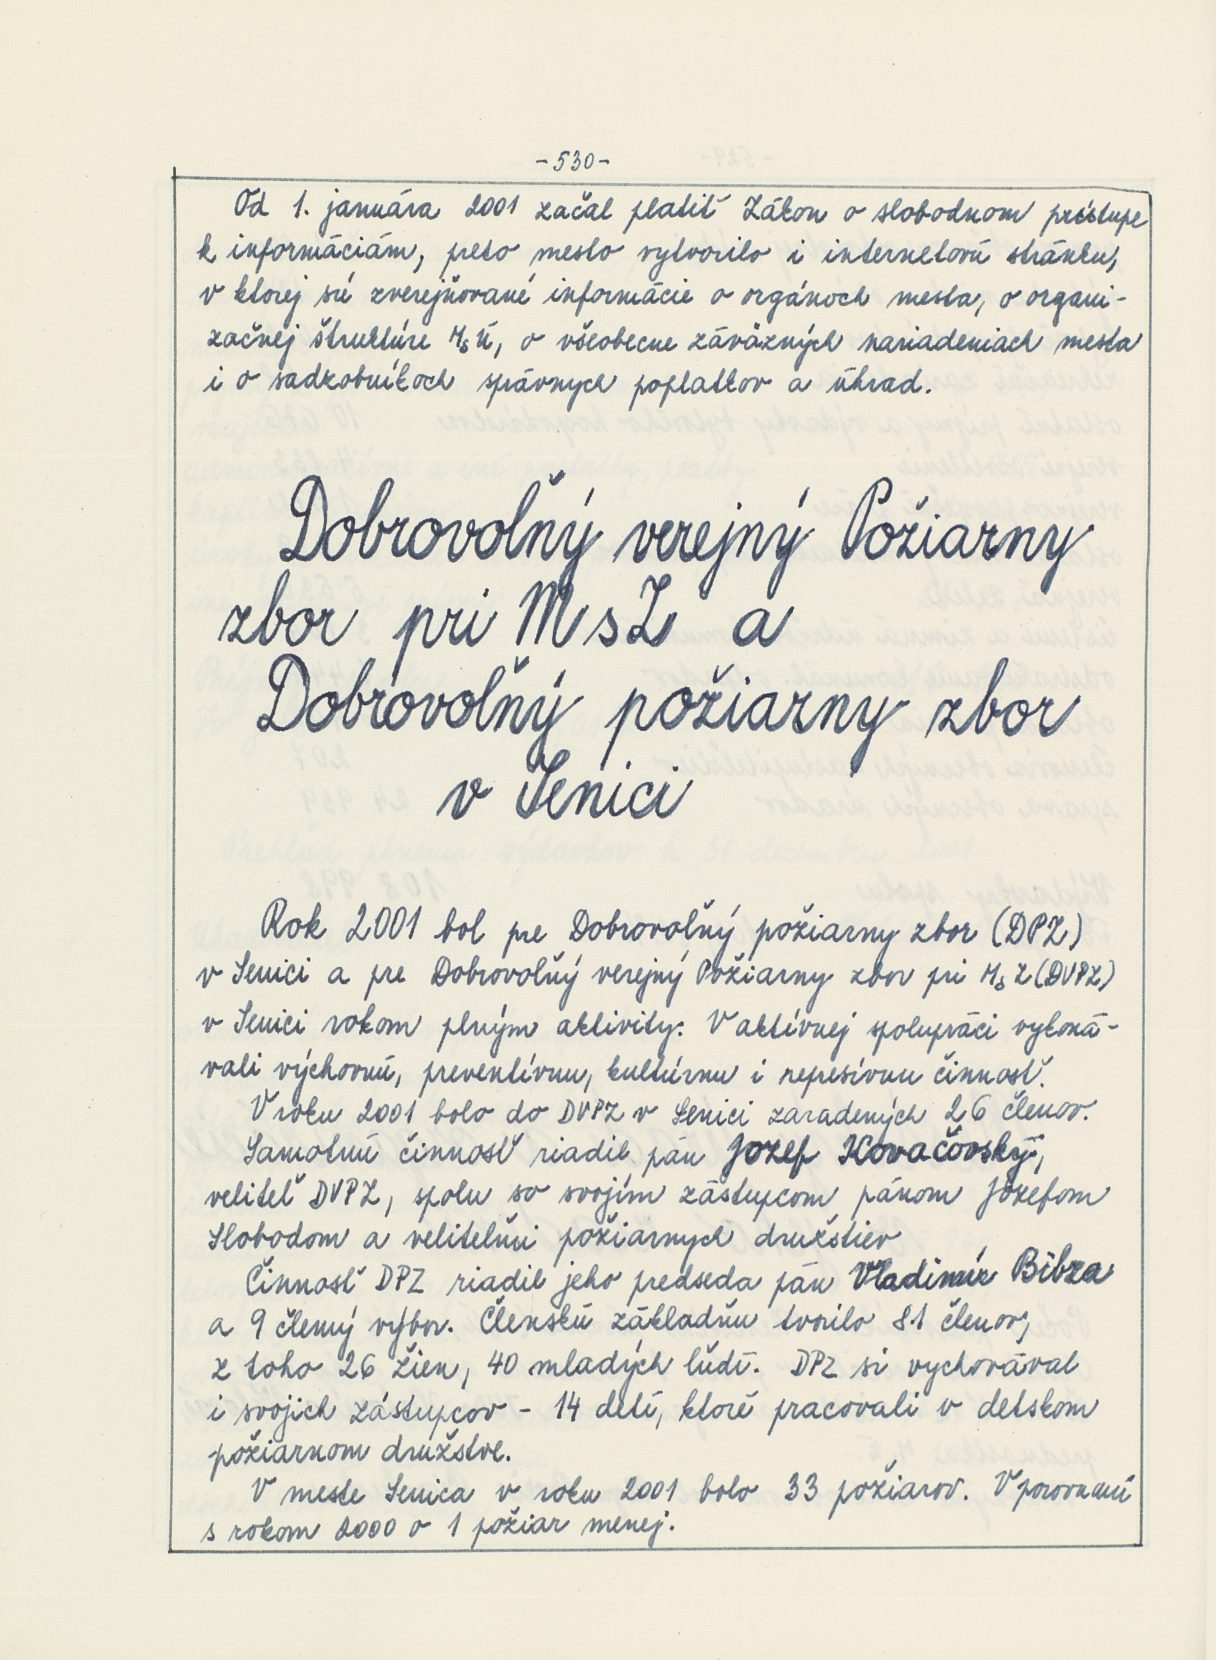 -530-
Od 1. januára 2001 začal platiť Zákon o slobodnom prístupe
k informáciám, preto mesto vytvorilo i internetovú stránku,
v ktorej sú zverejňované informácie o orgánoch mesta, o organi-
začnej štruktúre MsÚ, o všeobecne záväzných nariadeniach mesta
i o sadzobníkoch správnych poplatkov a úhrad.
Dobrovoľný verejný Požiarny
zbor pri MsZ a
Dobrovoľný požiarny zbor
v Senici
Rok 2001 bol pre Dobrovoľný požiarny zbor (DPZ)
v Senici a pre Dobrovoľný verejný Požiarny zbor pri MsZ (DVPZ)
v Senici rokom plným aktivity. V aktívnej spolupráci vykoná-
vali výchovnú, preventívnu, kultúrnu i represívnu činnosť.
V roku 2001 bolo do DVPZ v Senici zaradených 26 členov.
Samotnú činnosť riadil pán Jozef Kovačovský,
veliteľ DVPZ, spolu so svojím zástupcom pánom Jozefom
Slobodom a veliteľmi požiarnych družstiev
Činnosť DPZ riadil jeho predseda pán Vladimír Bibza
a 9 členný výbor. Členskú základňu tvorilo 81 členov,
z toho 26 žien, 40 mladých ľudí. DPZ si vychovával
i svojich zástupcov - 14 detí, ktoré pracovali v detskom
požiarnom družstve.
V meste Senica v roku 2001 bolo 33 požiarov. V porovnaní
s rokom 2000 o 1 požiar menej.